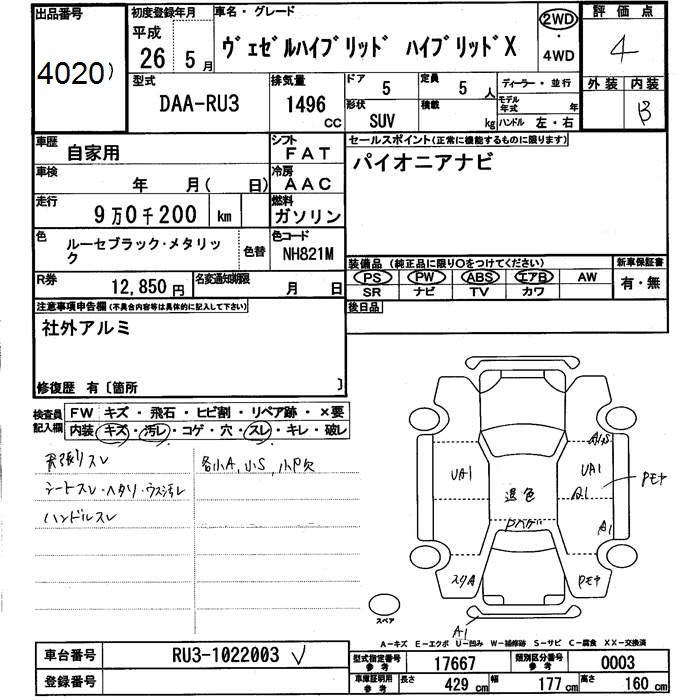 出品番号
4020)
初度登録年月
平成
26 5月
車名・グレード
ヴェゼルハイブリッド ハイブリッドX
2WD
・
4WD
評価点
4
外装 内装
B
型式
DAA-RU3
排気量
1496
cc
ドア
5
定員
5 人
形状
SUV
積載
kg
ディーラー・並行
モデル年式 年
ハンドル 左・右
車歴
自家用
シフト
FAT
車検
年 月( 日)
冷房
AAC
走行
9万0千200 km
燃料
ガソリン
色
ルーセブラック・メタリック
色替
色コード
NH821M
R券
12,850円
名変通知期限
月 日
セールスポイント(正常に機能するものに限ります)
パイオニアナビ
装備品(純正品に限り○をつけてください)
PS PW ABS エアB AW
SR ナビ TV カワ
新車保証書
有・無
後日品
注意事項申告欄(不具合内容等は具体的に記入して下さい)
社外アルミ
修復歴 有〔箇所 〕
検査員記入欄
FW キズ・飛石・ヒビ割・リペア跡・×要
内装 キズ・汚レ・コゲ・穴・スレ・キレ・破レ
シートスレ・ヘタリ・ウス汚レ
ハンドルスレ
各小A,小S,小P欠
UA1
UA1
A1
Pモヤ
退色
Pハゲ
A1
スリA
Pモヤ
A1
スペア
A-キズ E-エクボ U-凹み W-補修跡 S-サビ C-腐食 XX-交換済
車台番号
RU3-1022003
登録番号
型式指定番号
参考
17667
類別区分番号
参考
0003
車庫証明用
参考
長さ
429 cm
幅
177 cm
高さ
160 cm